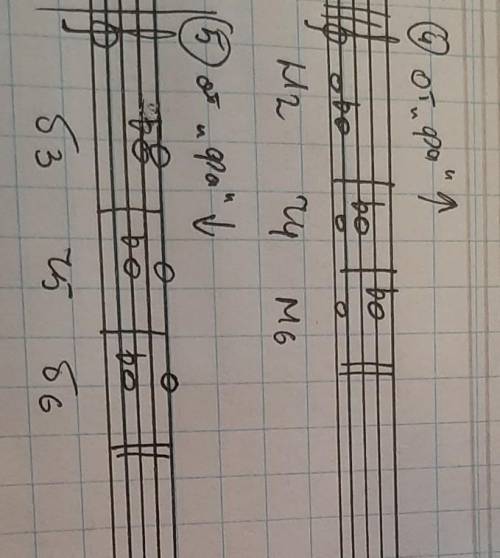 4 от „фа" ↑
м2 ч4 м6
5 от „фа" ↓
б3 ч5 б6